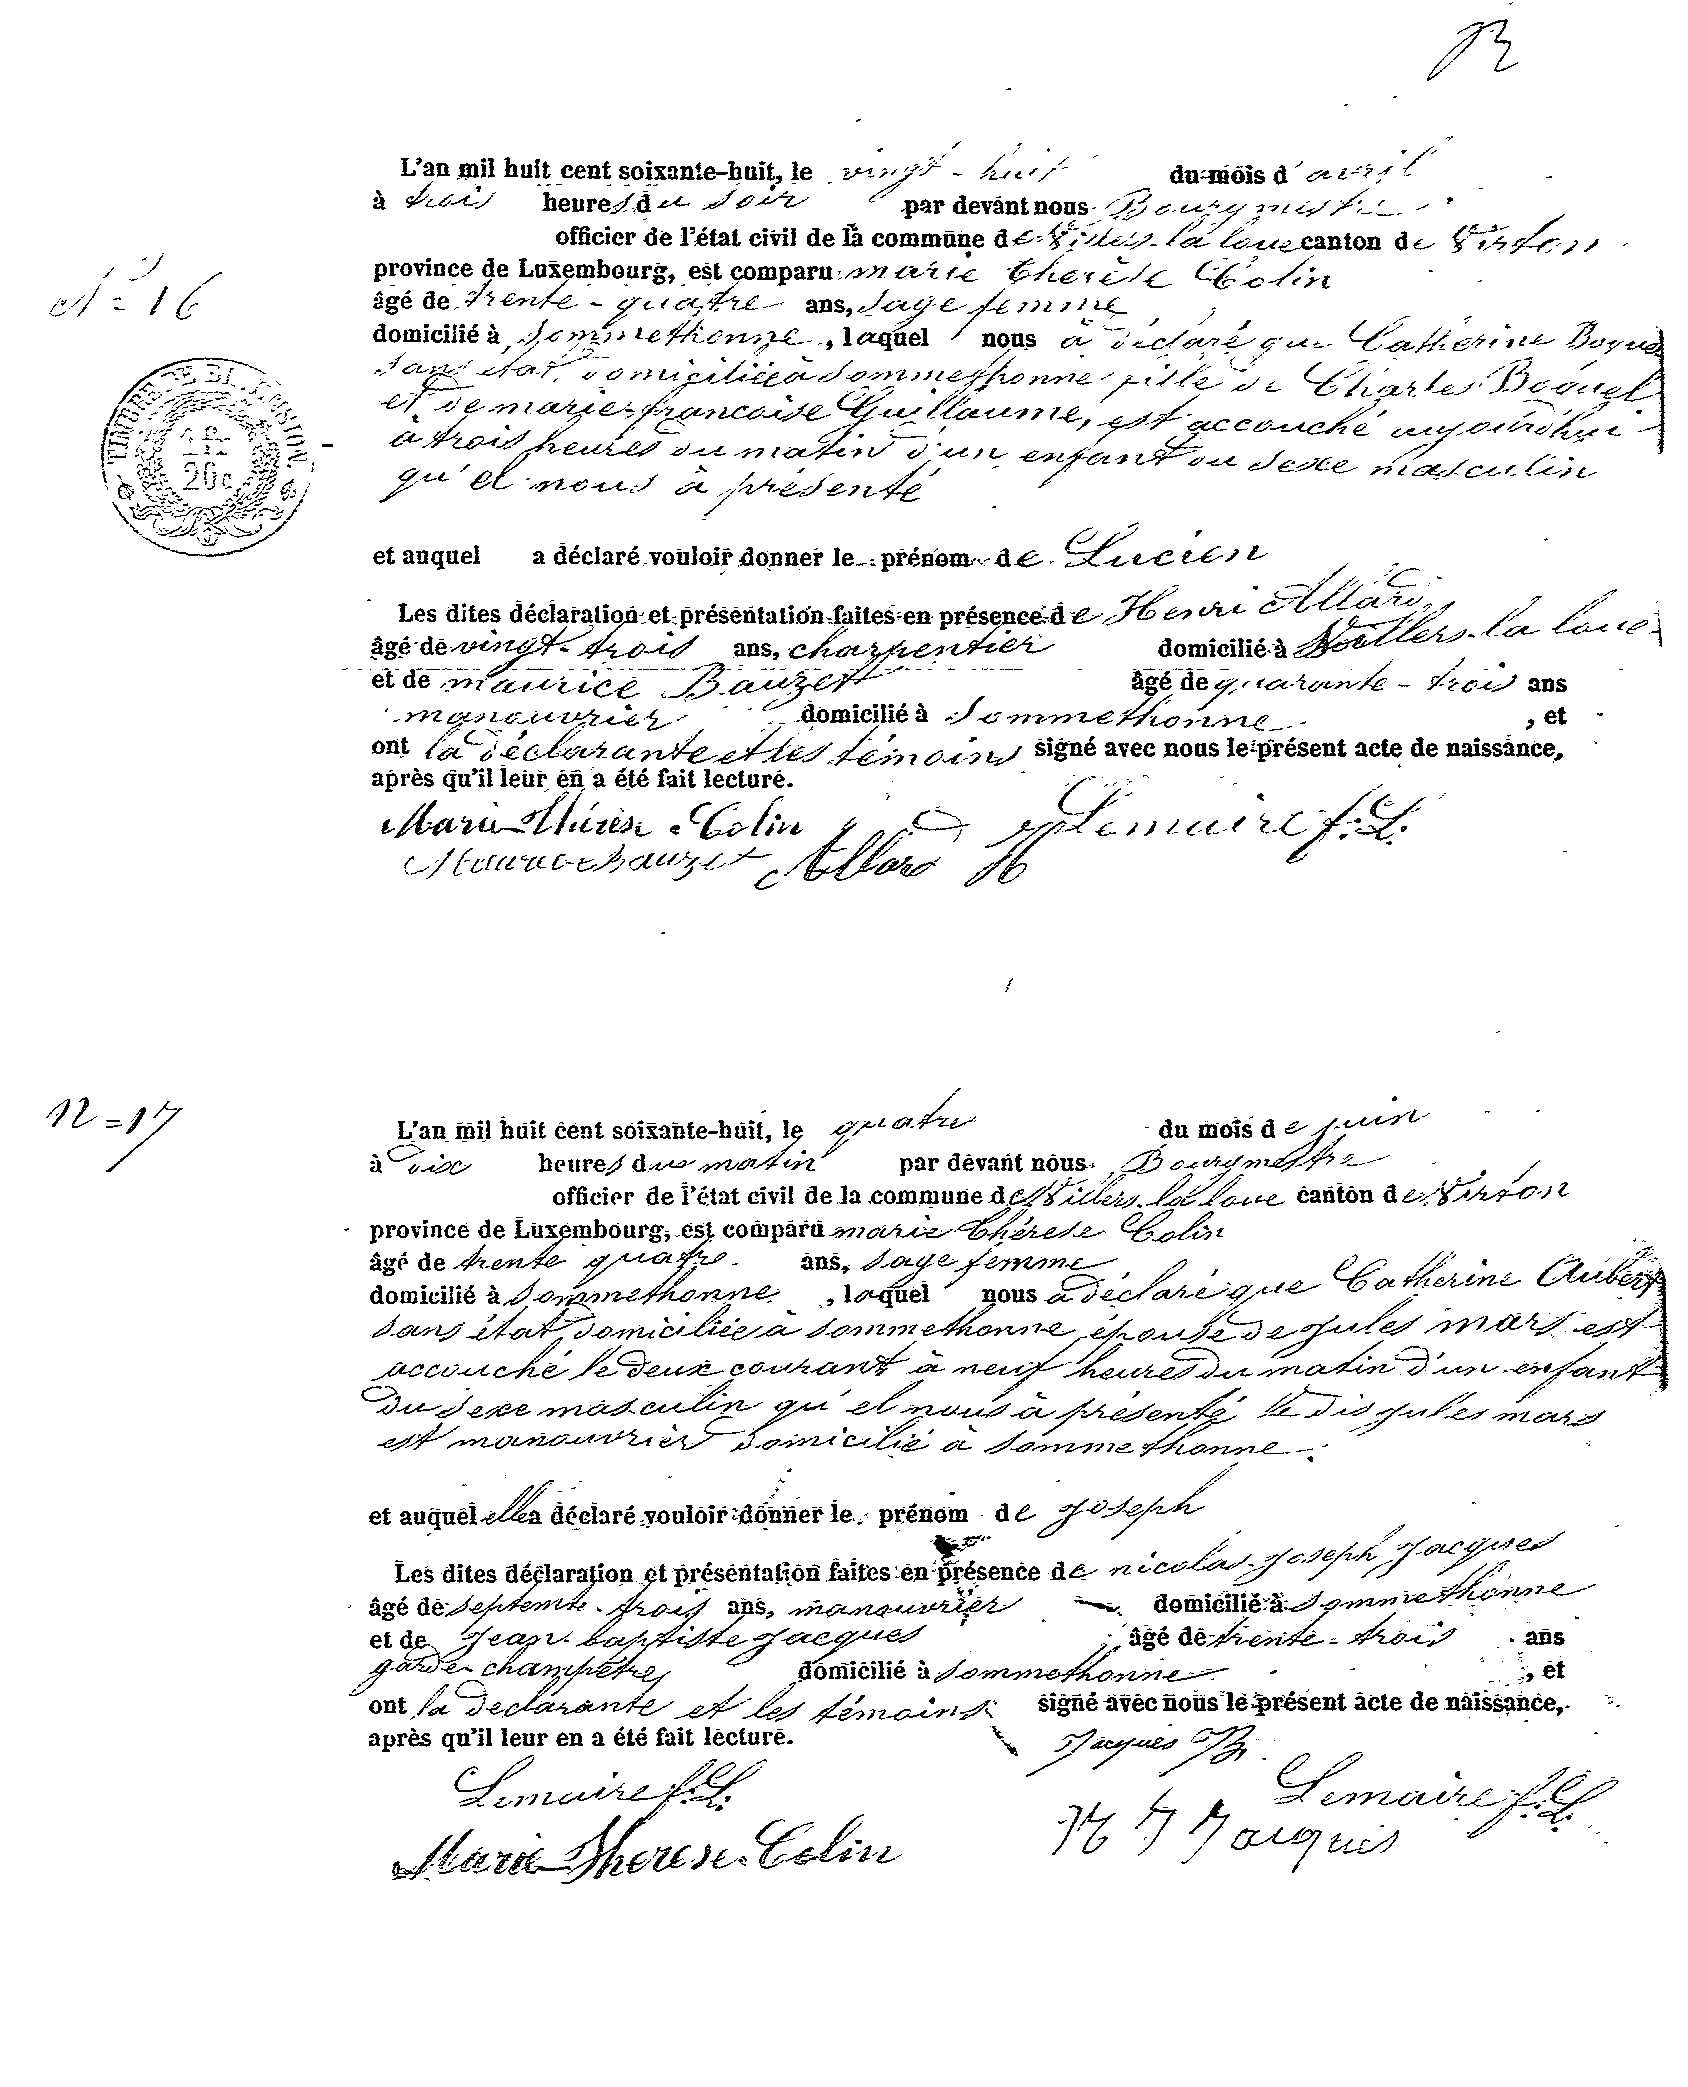 N° = 16
TIMBRE DE DIMENSION
1 fr
20c
L'an mil huit cent soixante-huit, le vingt-huit du mois d'avril
à trois heures du soir par devant nous Bourgmestre
officier de l'état civil de la commune de Villers-la loue canton de Virton
province de Luxembourg, est comparu marie Therèse Colin
âgé de trente-quatre ans, sage femme
domicilié à Sommethonne, laquel nous à déclaré que Catherine Boquel
sans état, domiciliée à sommethonne fille de Charles Boquel
et de marie-francoise Guillaume, est accouché aujourd'hui
à trois heures du matin d'un enfant du sexe masculin
qu'el nous à présenté
et auquel a déclaré vouloir donner le prénom de Lucien
Les dites déclaration et présentation faites en présence de Henri Allard
âgé de vingt-trois ans, charpentier domicilié à Villers-la loue
et de maurice Bauzet âgé de quarante-trois ans
manouvrier domicilié à Sommethonne, et
ont la déclarante et les témoins signé avec nous le présent acte de naissance,
après qu'il leur en a été fait lecture.
Marie Thérèse Colin Lemaire f.L.
Maurice Bauzet Allard H
N = 17
L'an mil huit cent soixante-huit, le quatre du mois de juin
à dix heures du matin par devant nous Bourgmestre
officier de l'état civil de la commune de Villers-la loue canton de Virton
province de Luxembourg, est comparu marie Thérese Colin
âgé de trente quatre ans, sage femme
domicilié à Sommethonne, laquel nous à déclaré que Catherine Aubert
sans état, domiciliée à sommethonne, épouse de jules mars est
accouché le deux courant à neuf heures du matin d'un enfant
du sexe masculin qu'el nous à présenté le dis jules mars
est manouvrier domicilié à sommethonne.
et auquel elle a déclaré vouloir donner le prénom de joseph
Les dites déclaration et présentation faites en présence de nicolas-joseph jacques
âgé de septente-trois ans, manouvrier domicilié à Sommethonne
et de jean-baptiste jacques âgé de trente-trois ans
garde-champêtre, domicilié à sommethonne, et
ont la declarante et les témoins signé avec nous le présent acte de naissance,
après qu'il leur en a été fait lecture.
Jacques JB
Lemaire f.L. Lemaire f.L.
Marie Therese Colin N J Jacques